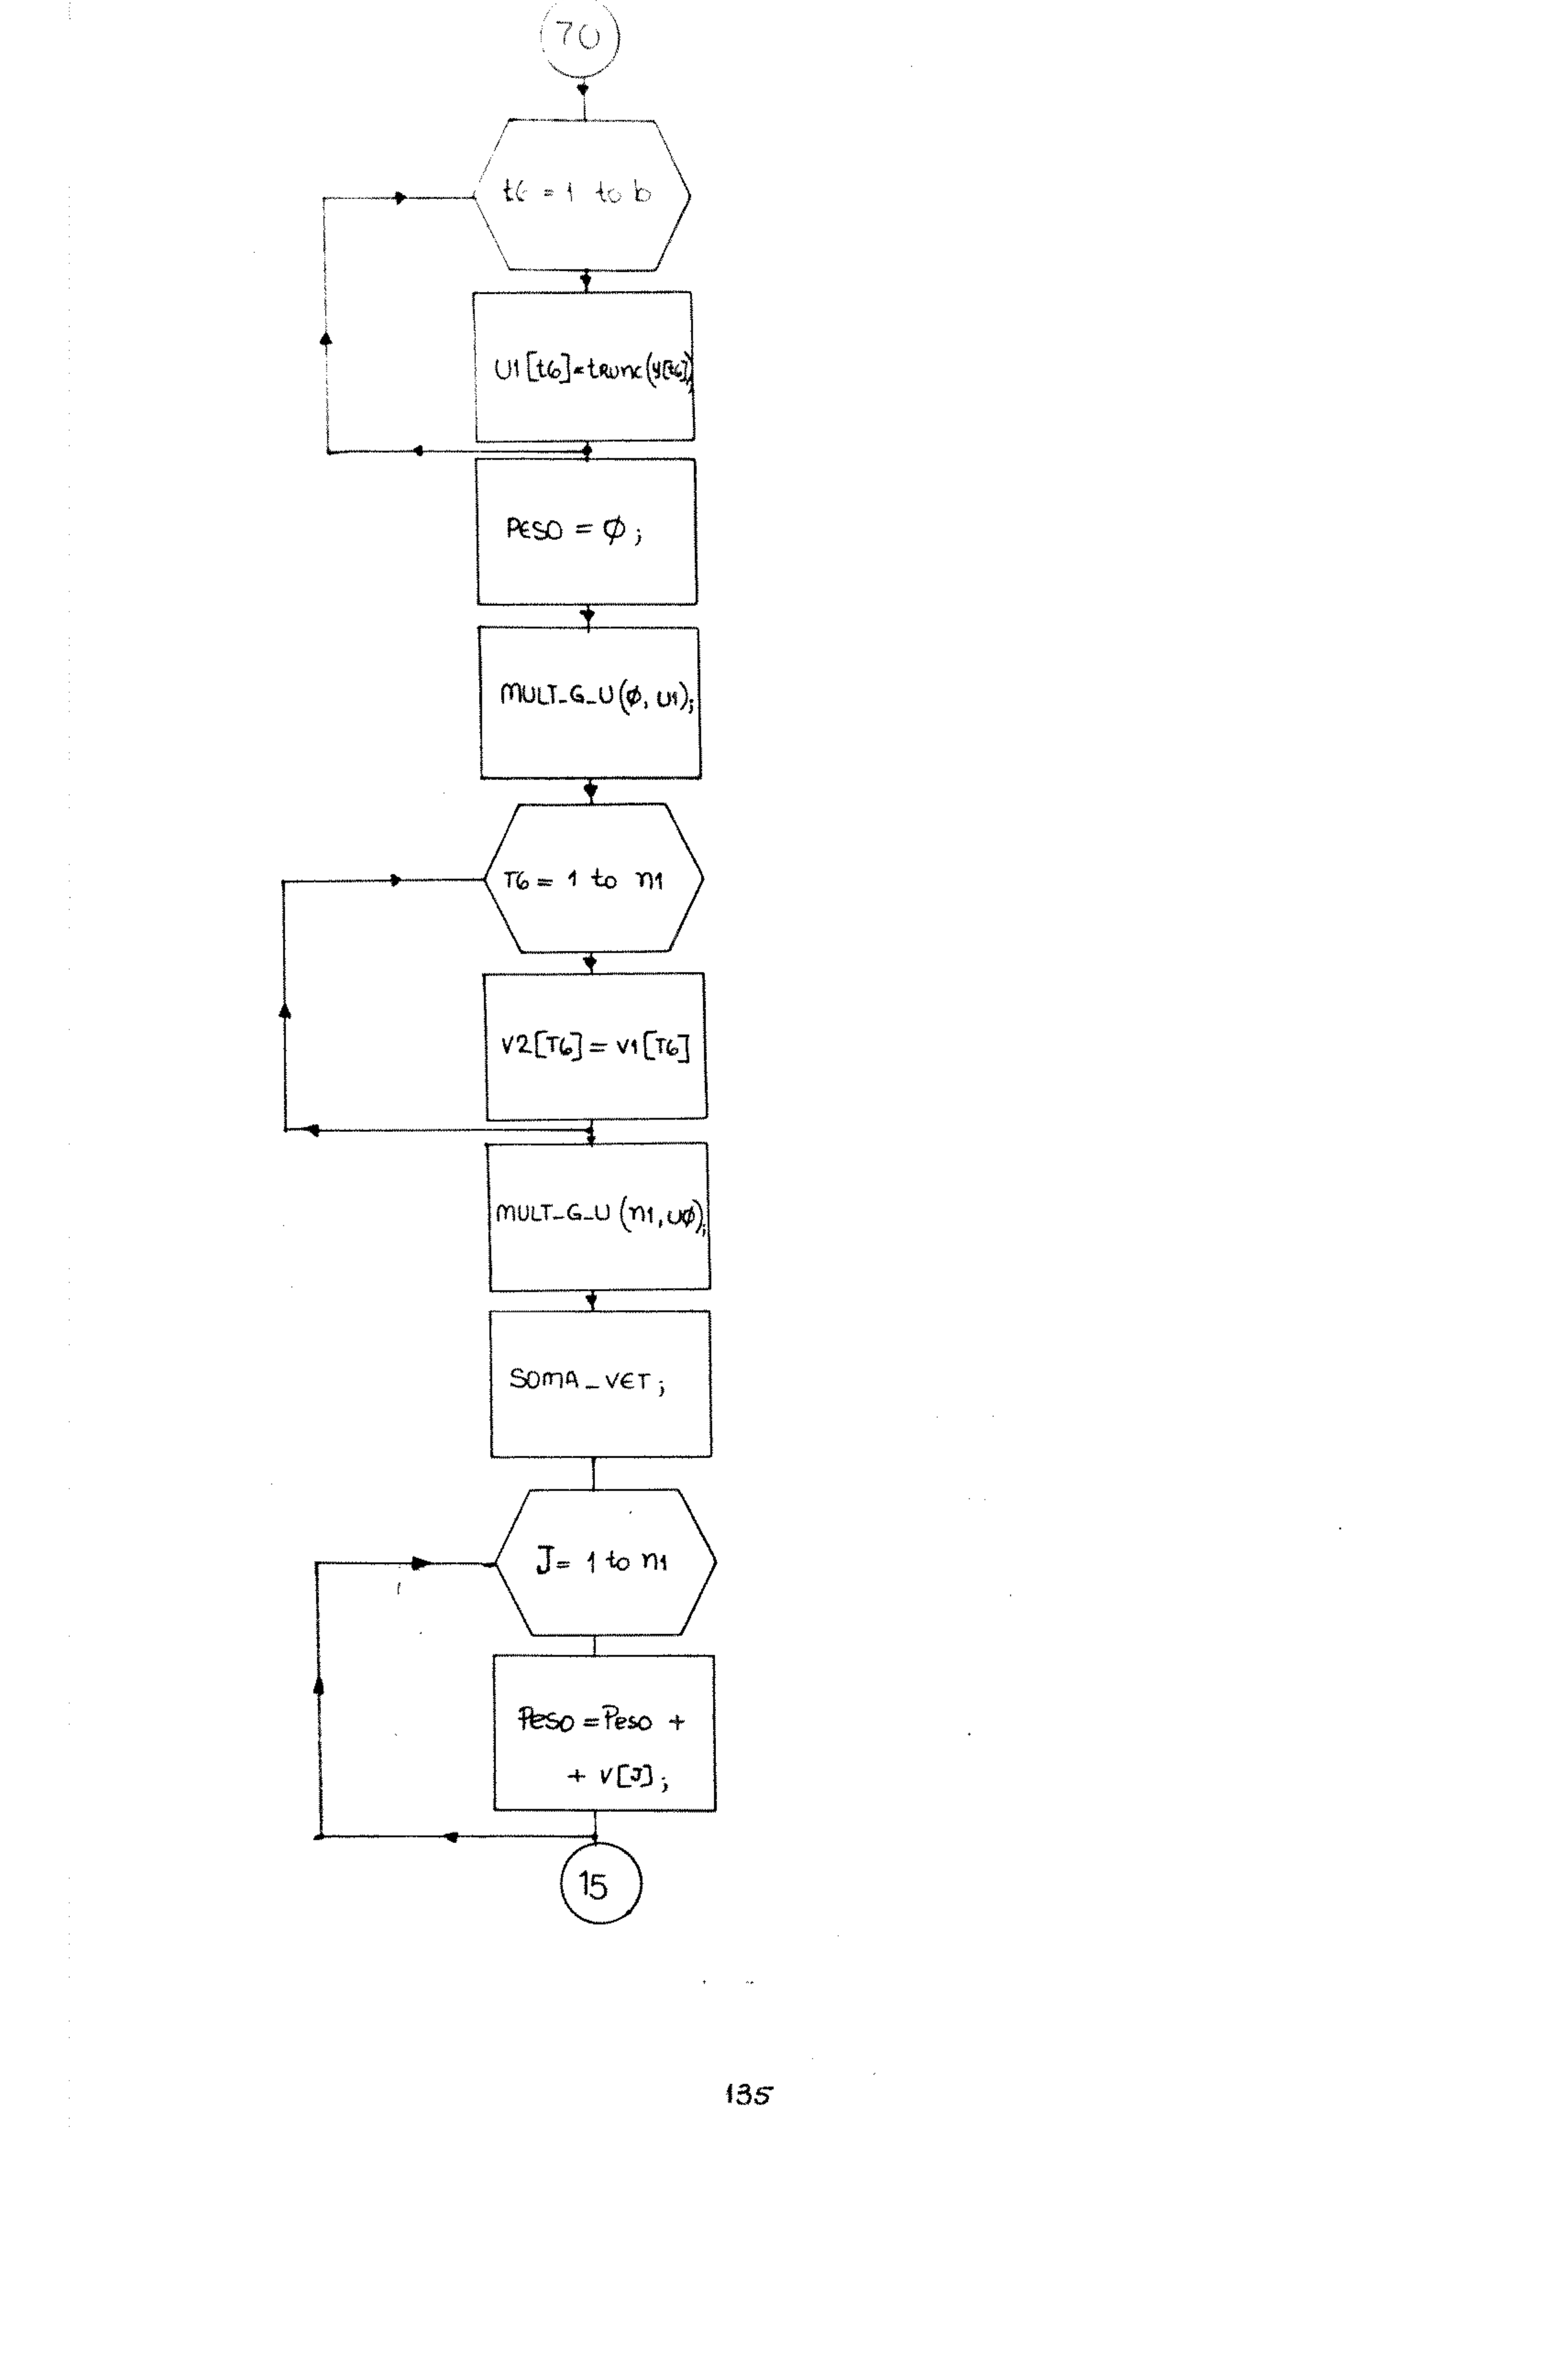 70
t6 = 1 to b
U1[t6]=trunc(y[t6])
PESO = ϕ;
MULT_G_U(ϕ, U1);
T6 = 1 to n1
V2[T6] = V1[T6]
MULT_G_U (n1, Uϕ);
SOMA_VET;
J = 1 to n1
Peso = Peso +
+ V[J];
15
135